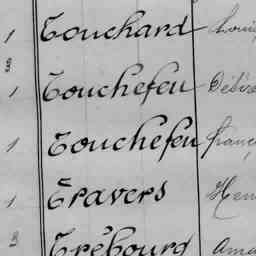 1 Touchard Louis
1 Touchefeu Désiré
1 Touchefeu franç
1 Travers Hen
Trébourg Ama